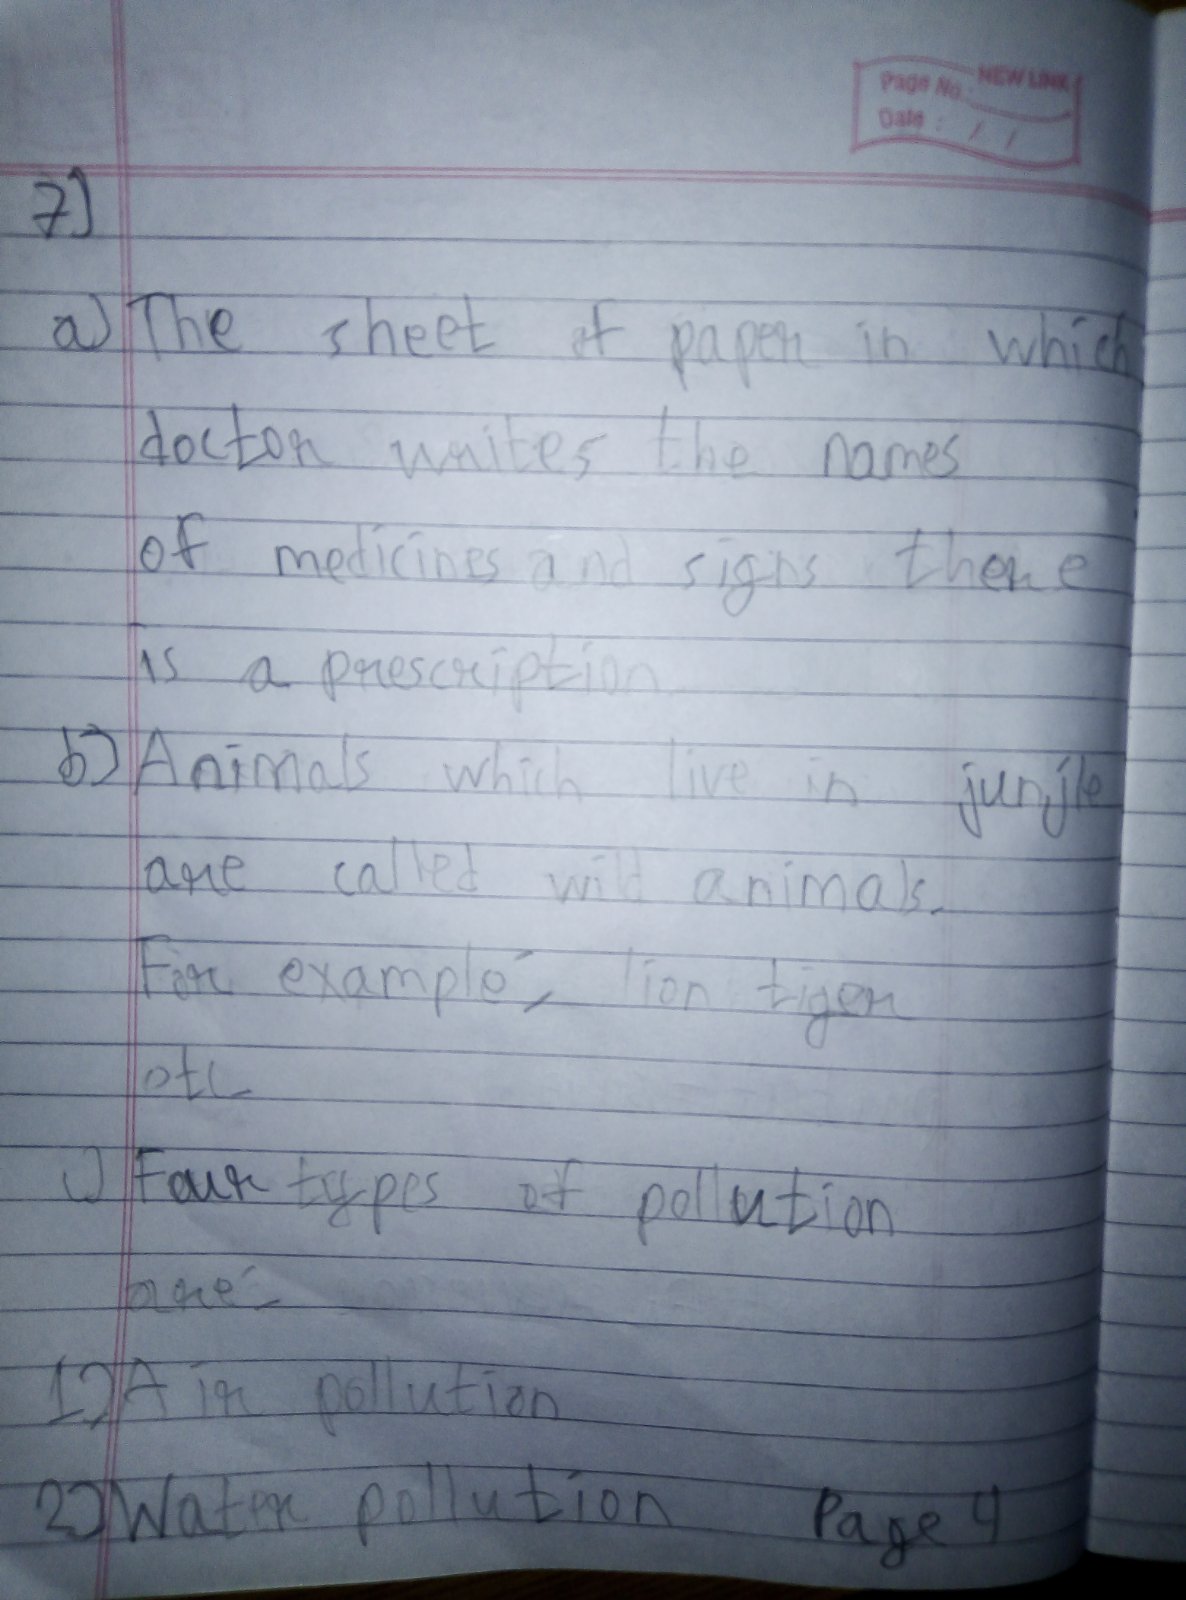 NEW LINK
Page No.:
Date : / /
7)
a) The sheet of paper in which
doctor writes the names
of medicines and signs there
is a prescription
b) Animals which live in junjle
are called wild animals.
For example:- lion tiger
etc
c) Four types of pollution
are:-
1) Air pollution
2) Water pollution Page 4